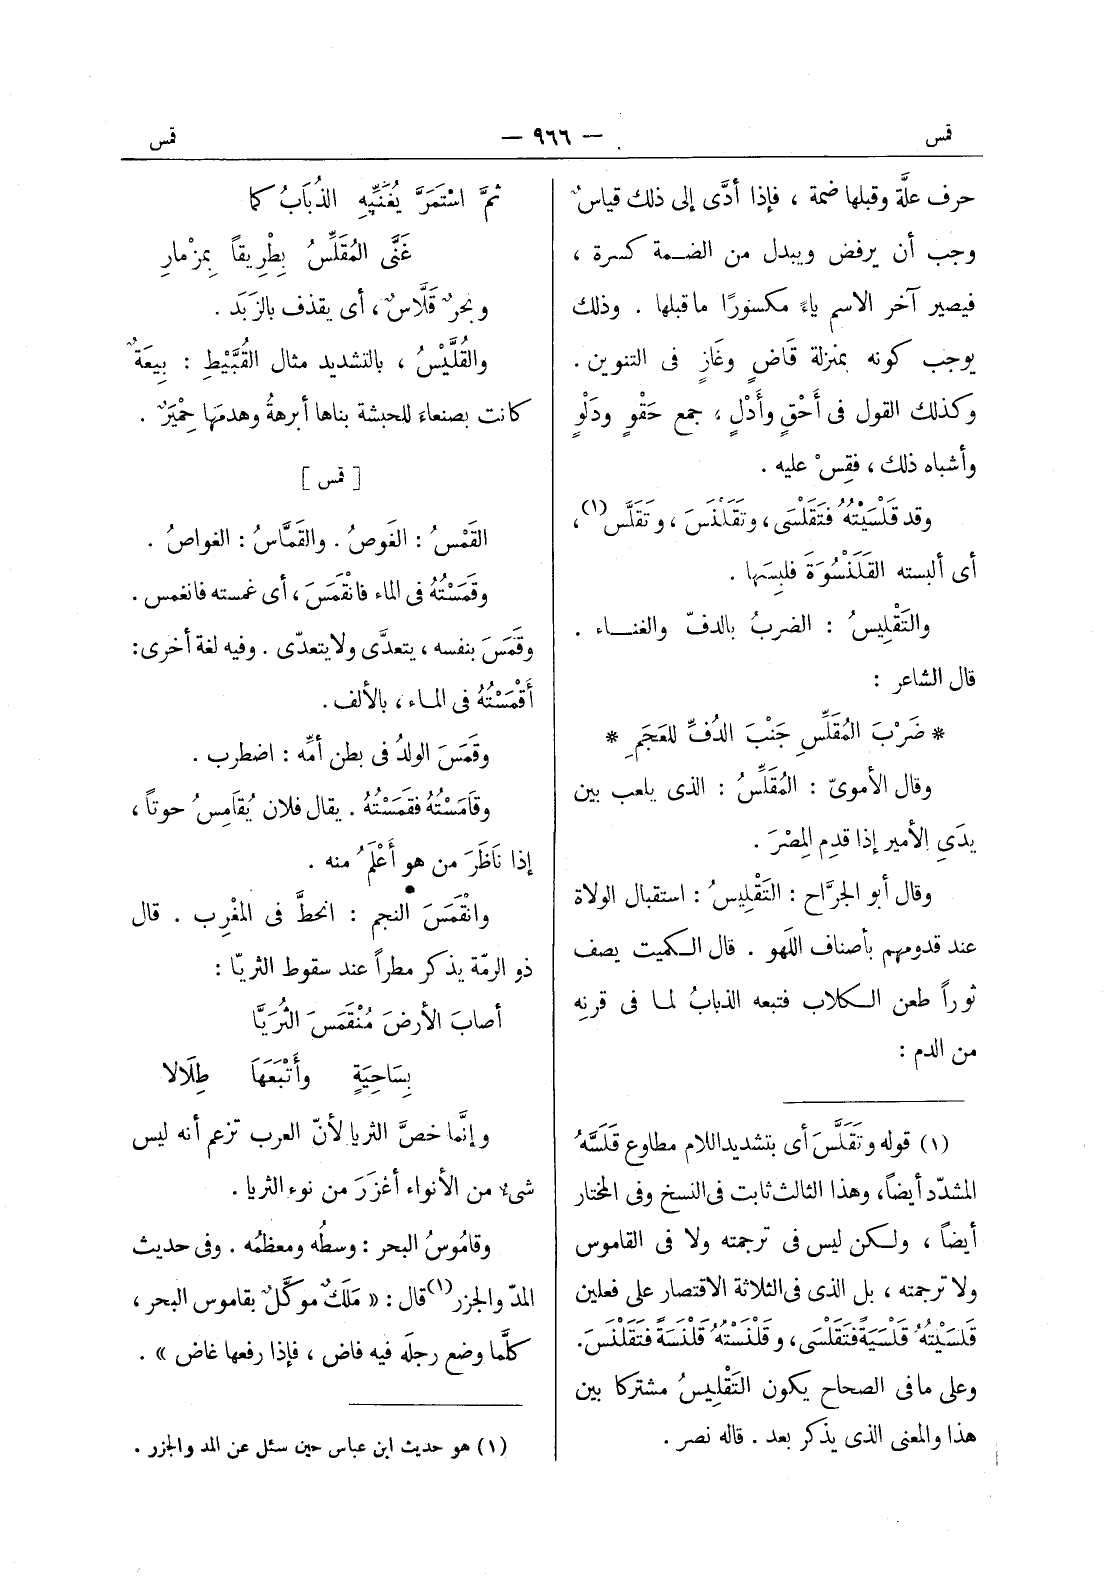 قمس
— ٩٦٦ —
قمس
حرف علَّة وقبلها ضمة ، فإذا أدَّى إلى ذلك قياسٌ
وجب أن يرفض ويبدل من الضمة كسرة ،
فيصير آخر الاسم ياءً مكسورًا ما قبلها . وذلك
يوجب كونه بمنزلة قَاضٍ وغَازٍ فى التنوين .
وكذلك القول فى أَحْقٍ وأَدْلٍ ، جمع حَقْوٍ ودَلْوٍ
وأشباه ذلك ، فقِسْ عليه .
وقد قَلْسَيْتُهُ فَتَقَلْسَى ، وتَقَلْنَسَ ، وتَقَلَّسَ(١) ،
أى ألبسته القَلَنْسُوَةَ فلبِسَها .
والتَقْلِيسُ : الضربُ بالدفّ والغناء .
قال الشاعر :
* ضَرْبَ المُقَلِّسِ جَنْبَ الدُفِّ للعَجَمِ *
وقال الأموىّ : المُقَلِّسُ : الذى يلعب بين
يدَىِ الأمير إذا قدِم المِصْرَ .
وقال أبو الجرَّاح : التَقْلِيسُ : استقبال الولاة
عند قدومهم بأصناف اللَهو . قال الكميت يصف
ثوراً طعن الكلاب فتبعه الذبابُ لما فى قرنِه
من الدم :
(١) قوله وتَقَلَّسَ أى بتشديد اللام مطاوع قَلَسَّهُ
المشدّد أيضاً ، وهذا الثالث ثابت فى النسخ وفى المختار
أيضاً ، ولكن ليس فى ترجمته ولا فى القاموس
ولا ترجمته ، بل الذى فى الثلاثة الاقتصار على فعلين
قَلْسَيْتُهُ قَلْسَيَةً فَتَقَلْسَى ، وقَلْنَسْتُهُ قَلْنَسَةً فَتَقَلْنَسَ .
وعلى ما فى الصحاح يكون التَقْلِيسُ مشتركا بين
هذا والمعنى الذى يذكر بعد . قاله نصر .
ثمَّ اسْتَمَرَّ يُغَنِّيهِ الذُبَابُ كما
غَنَّى المُقَلِّسُ بِطْرِيقاً بمزْمارِ
وبحرٌ قَلَّاسٌ ، أى يقذف بالزَبَد .
والقُلَّيْسُ ، بالتشديد مثال القُبَّيْطِ : بِيعَةٌ
كانت بصنعاءَ للحبشة بناها أبرهةُ وهدمَها حِمْيَرٌ .
[ قمس ]
القَمْسُ : الغَوصُ . والقَمَّاسُ : الغواصُ .
وقَمَسْتُهُ فى الماء فانْقَمَسَ ، أى غمسته فانغمس .
وقَمَسَ بنفسه ، يتعدَّى ولا يتعدّى . وفيه لغة أخرى :
أَقْمَسْتُهُ فى الماء ، بالألف .
وقَمَسَ الولدُ فى بطن أمِّه : اضطرب .
وقامَسْتُهُ فقَمَسْتُهُ . يقال فلان يُقامِسُ حوتاً ،
إذا نَاظَرَ من هو أَعْلَمُ منه .
وانْقَمَسَ النجم : انحطَّ فى المغْرِب . قال
ذو الرمّة يذكر مطراً عند سقوط الثريّا :
أصابَ الأرضَ مُنْقَمَسَ الثُرَيَّا
بِسَاحِيَةٍ وأَتْبَعَهَا طِلَالا
وإنَّما خصَّ الثريا لأنّ العرب تزعم أنه ليس
شىءٌ من الأنواء أغزَرَ من نوء الثريا .
وقامُوسُ البحر : وسطُه ومعظمُه . وفى حديث
المدّ والجزر(١) قال : « مَلَكٌ موكَّلٌ بقاموس البحر ،
كلَّما وضع رجلَه فيه فاض ، فإذا رفعها غاض » .
(١) هو حديث ابن عباس حين سئل عن المد والجزر .